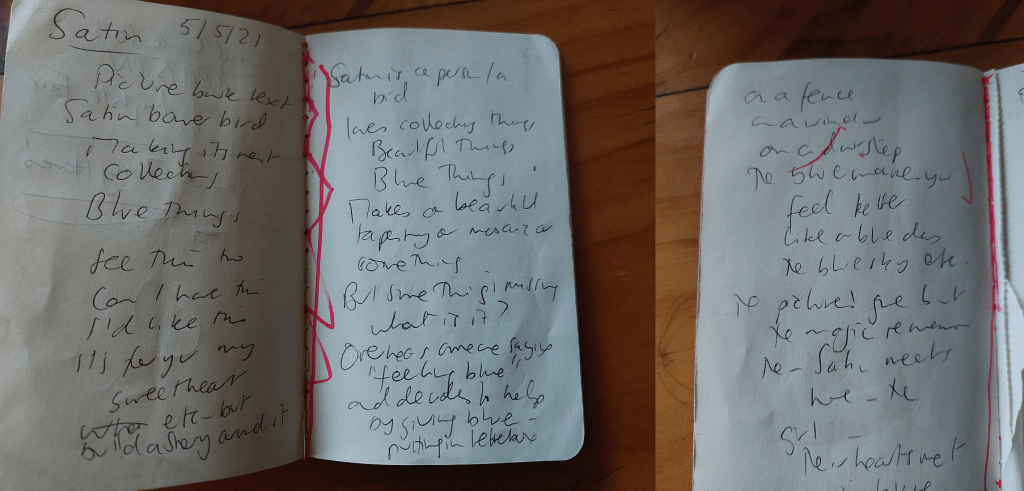 Satin 5/5/21
Picture book text
Satin bower bird
Making its nest
Collecting
Blue Things
See this
Can I have this
I'd like this
It's for you my
sweetheart
etc - but
build a story around it
Satin is a person / a
bird
loves collecting things
Beautiful Things
Blue Things
Makes a beautiful
tapestry or mosaic or
something
But something is missing
what is it?
Overhears someone saying
"feeling blue"
and decides to help
by giving blue -
putting in letterbox
on a fence
on a window
on a doorstep
The blue makes you
feel better
like a blue day
the blue sky etc.
The picture's gone but
the magic remains
The - Satin meets
the
girl -
Their hearts met
blue